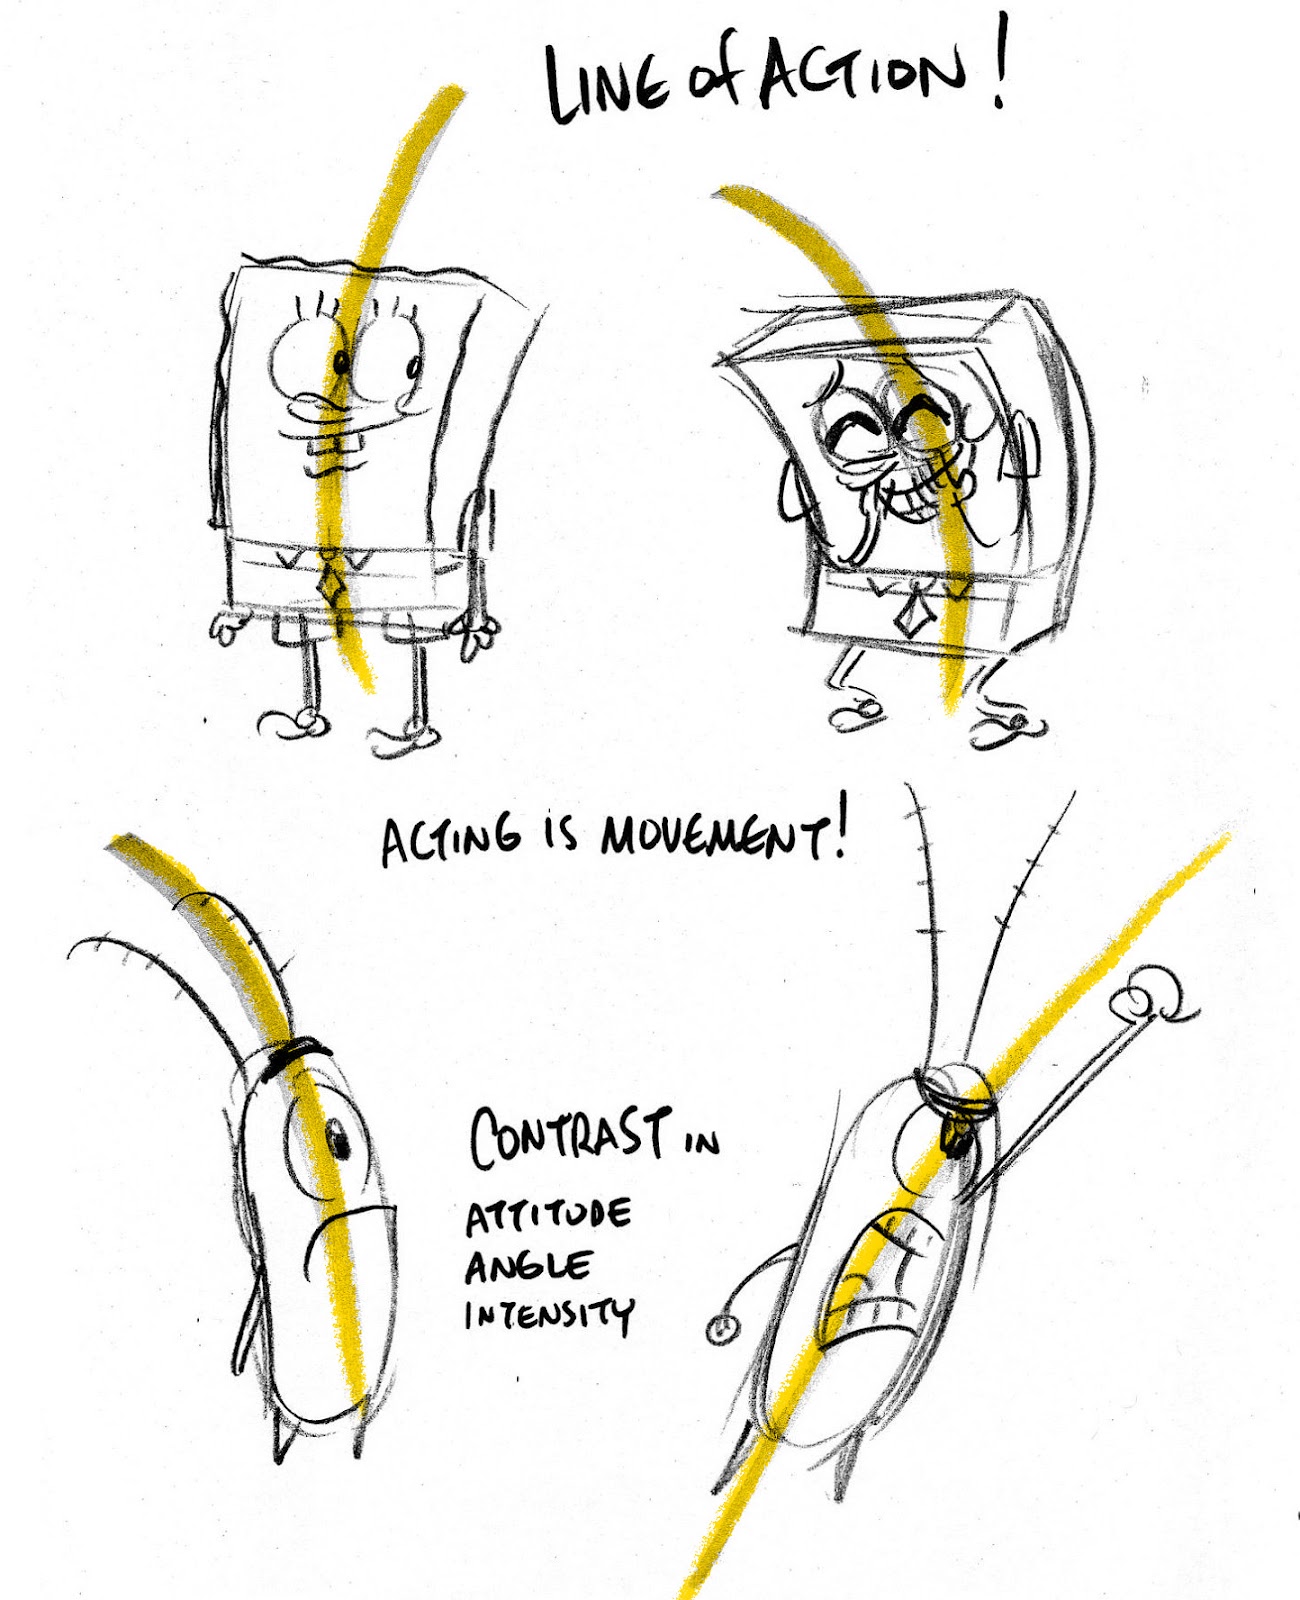 LINE of ACTION!
ACTING IS MOVEMENT!
CONTRAST IN
ATTITUDE
ANGLE
INTENSITY